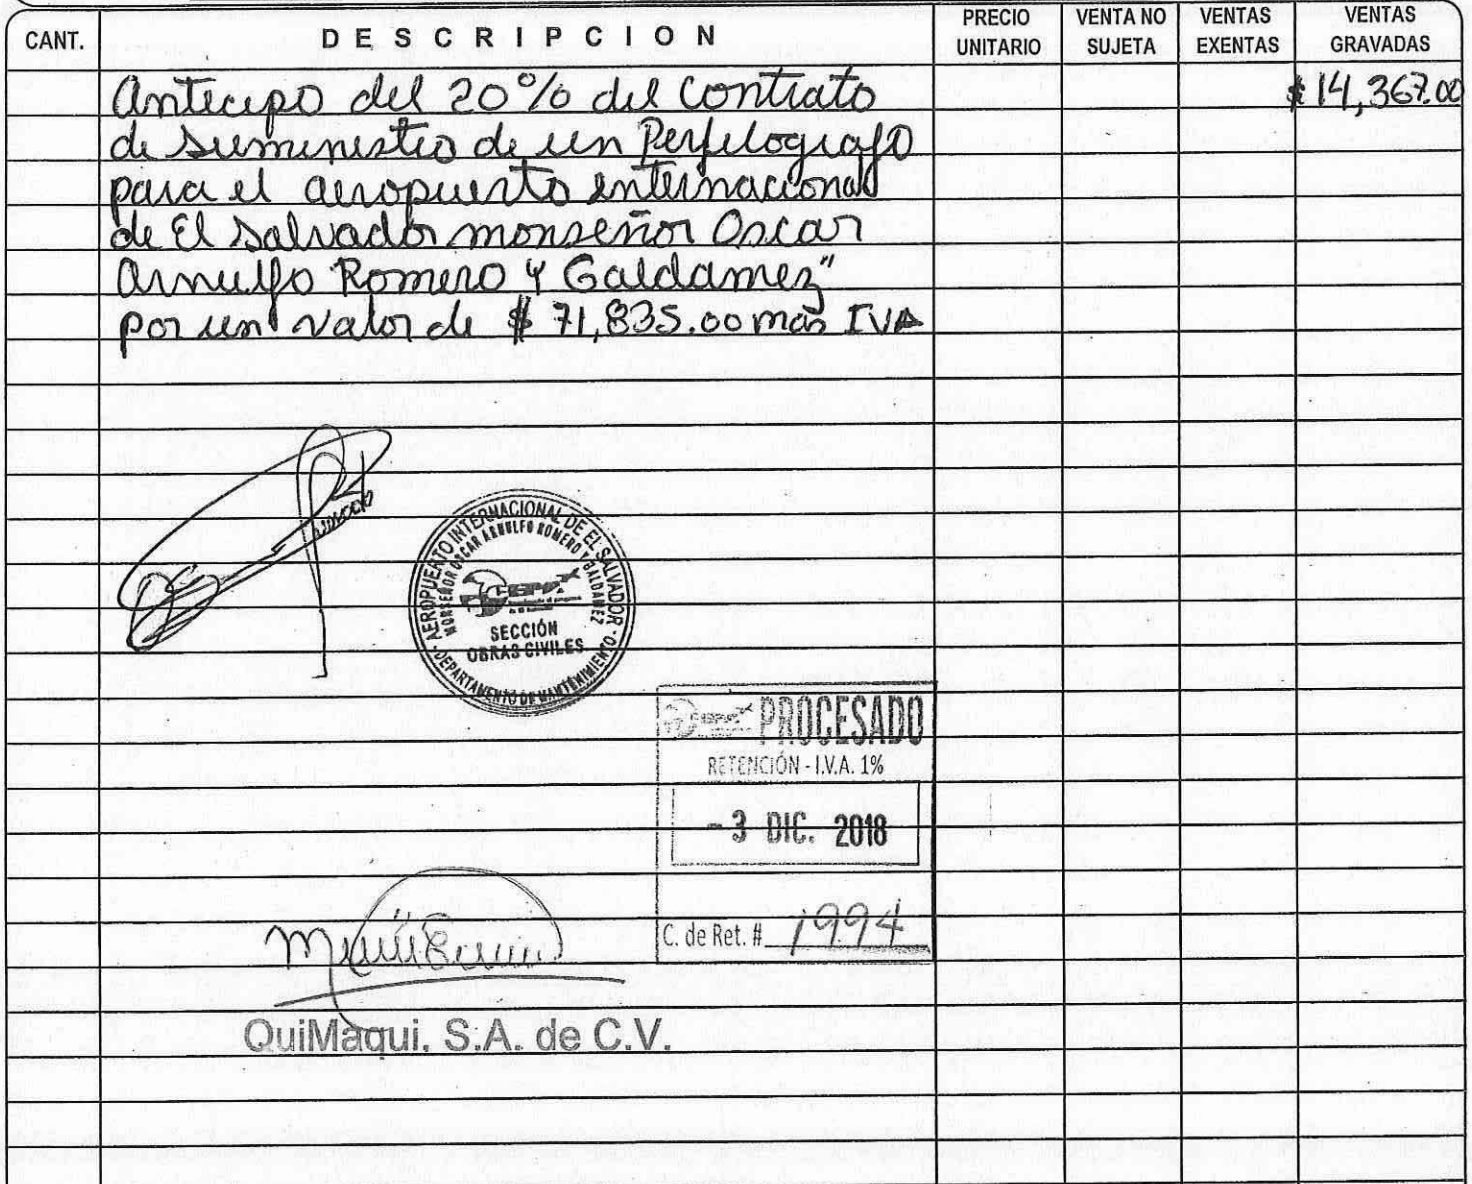 CANT. DESCRIPCION PRECIO UNITARIO VENTA NO SUJETA VENTAS EXENTAS VENTAS GRAVADAS
Anticipo del 20% del Contrato $14,367.00
de suministro de un Perfilografo
para el aeropuerto internacional
de El Salvador monseñor Oscar
Arnulfo Romero y Galdamez"
por un valor de $ 71,835.00 mas IVA
AEROPUERTO INTERNACIONAL DE EL SALVADOR
MONSEÑOR OSCAR ARNULFO ROMERO Y GALDAMEZ
CEPA
SECCIÓN
OBRAS CIVILES
DEPARTAMENTO DE MANTENIMIENTO
PROCESADO
RETENCIÓN - I.V.A. 1%
- 3 DIC. 2018
C. de Ret. # 1994
QuiMaqui, S.A. de C.V.